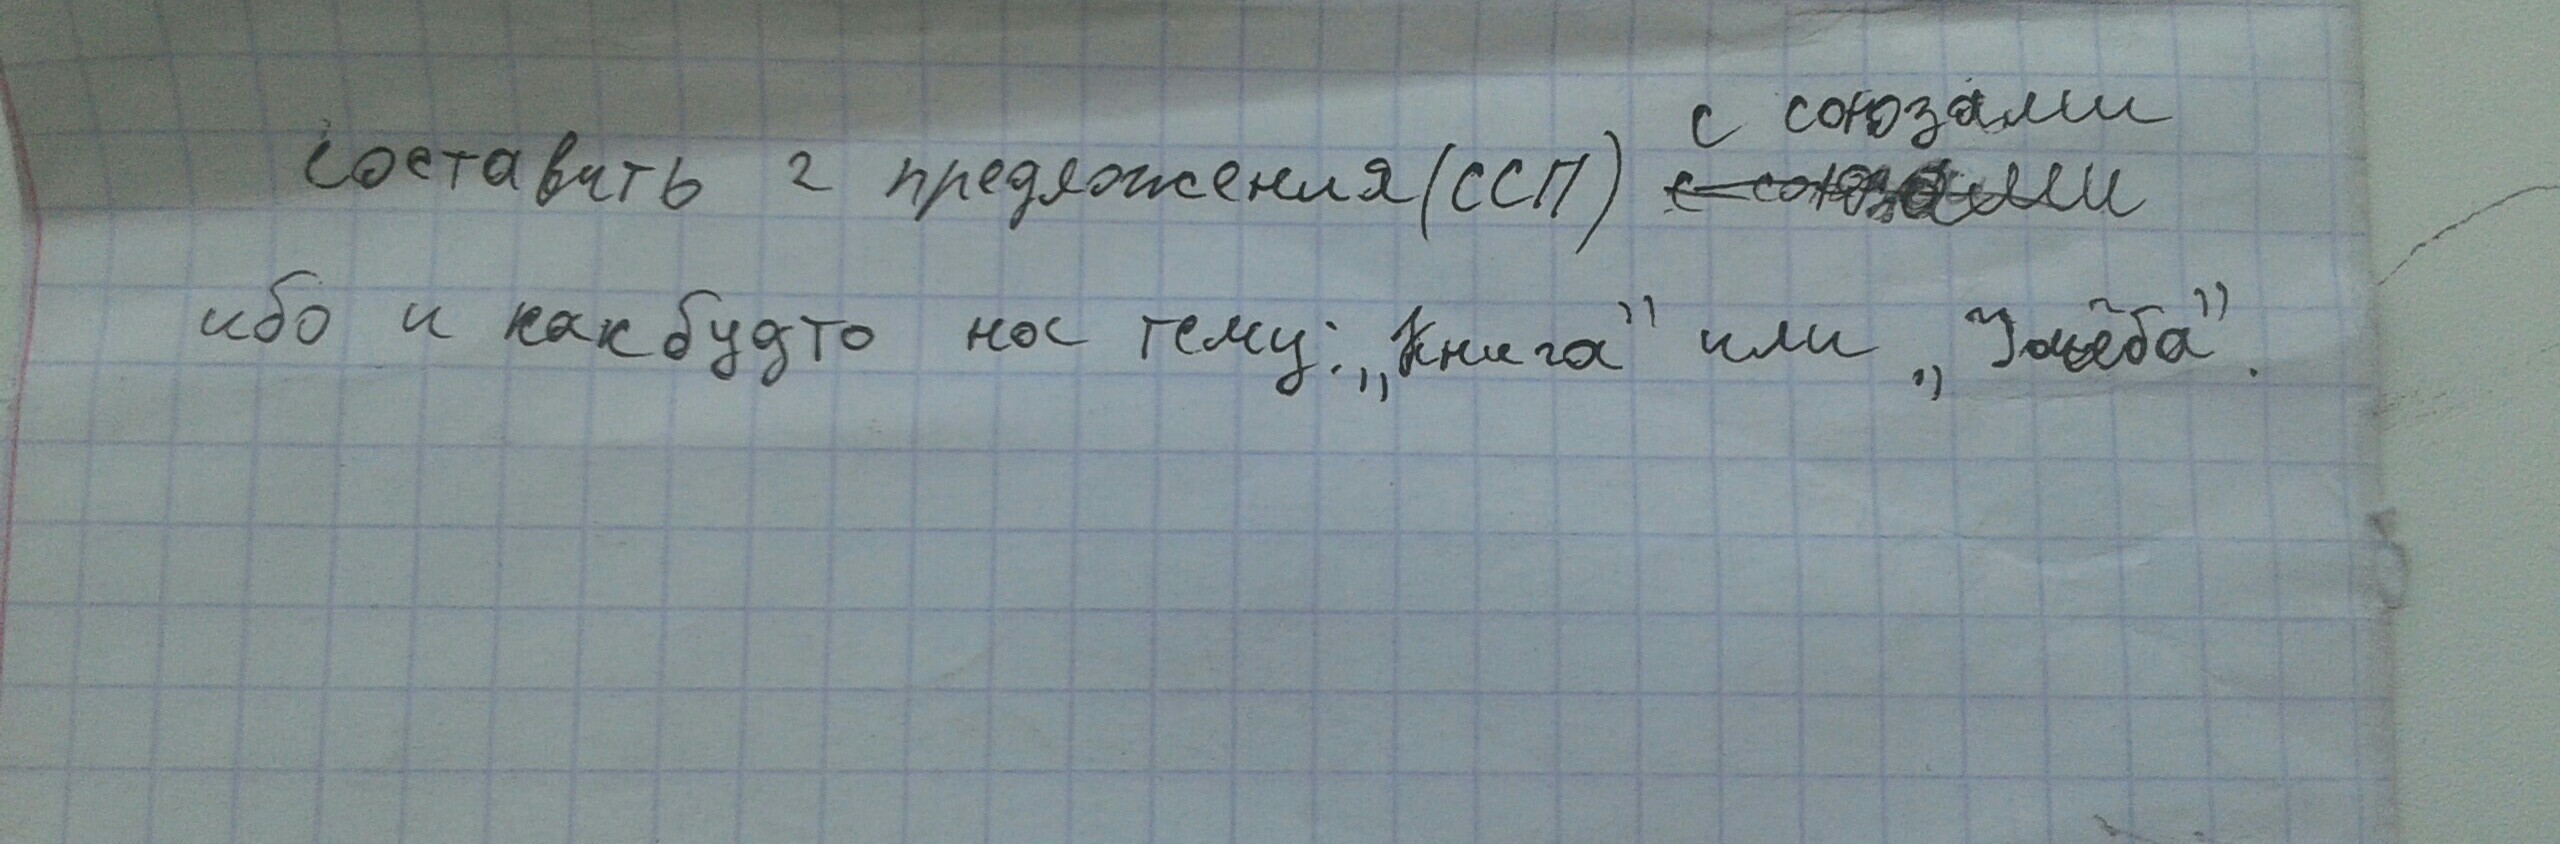 составить 2 предложения (ССП) с союзами
ибо и как будто на тему: „Книга” или „Учёба”.